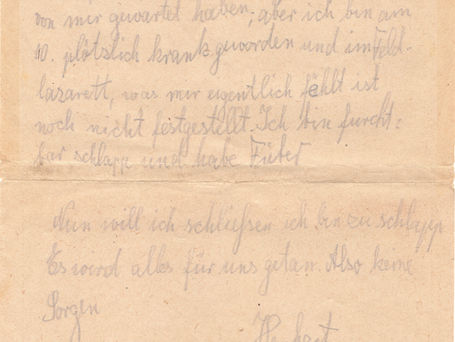 von mir gewartet haben, aber ich bin am
10. plötzlich krank geworden und im Feld-
lazarett, was mir eigentlich fehlt ist
noch nicht festgestellt. Ich bin furcht=
bar schlapp und habe Fieber
Nun will ich schließen ich bin zu schlapp
Es wird alles für uns getan. Also keine
Sorgen